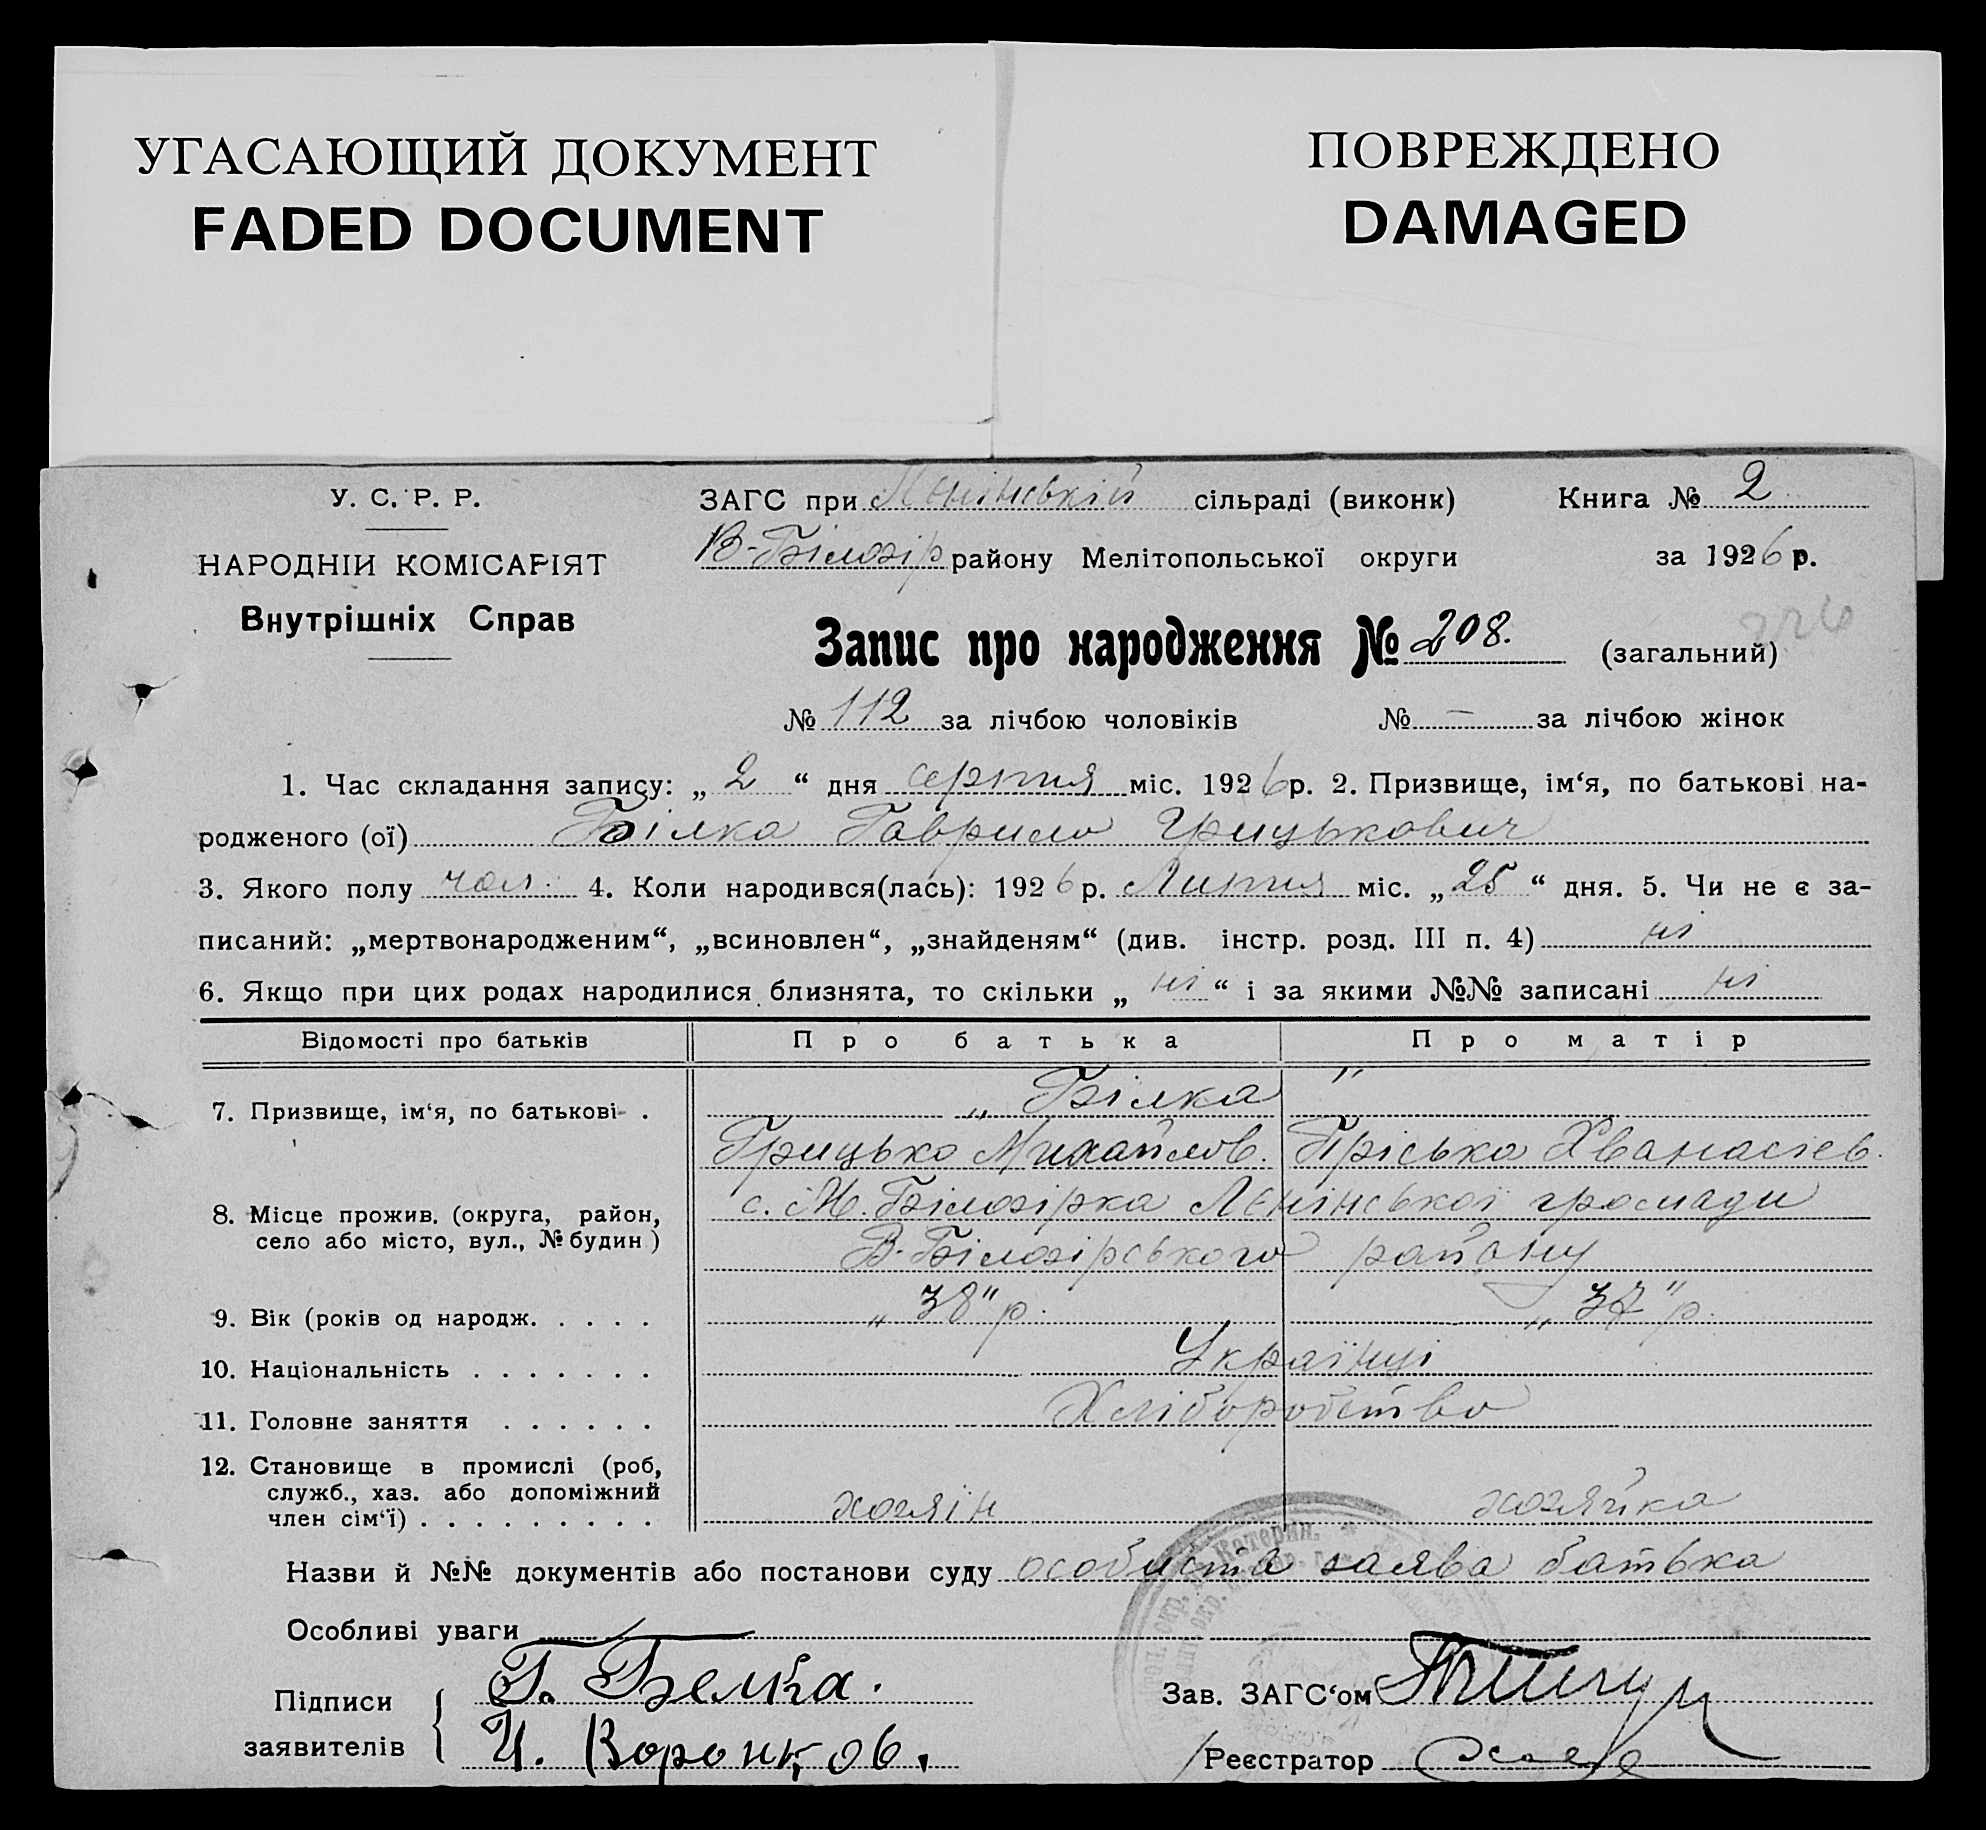 УГАСАЮЩИЙ ДОКУМЕНТ
FADED DOCUMENT
ПОВРЕЖДЕНО
DAMAGED
У. С. Р. Р.
НАРОДНІЙ КОМІСАРІЯТ
Внутрішніх Справ
ЗАГС при Ленінській сільраді (виконк) Книга № 2
В-Білозір району Мелітопольської округи за 1926 р.
226
Запис про народження № 208. (загальний)
№ 112 за лічбою чоловіків № — за лічбою жінок
1. Час складання запису: „ 2 “ дня серпня міс. 1926 р. 2. Призвище, ім‘я, по батькові на-
родженого (ої) Білка Гаврило Грицькович
3. Якого полу чол. 4. Коли народився(лась): 1926 р. Липня міс. „ 25 “ дня. 5. Чи не є за-
писаний: „мертвонародженим“, „всиновлен“, „знайденям“ (див. інстр. розд. III п. 4) ні
6. Якщо при цих родах народилися близнята, то скільки „ ні “ і за якими №№ записані ні
Відомості про батьків Про батька Про матір
7. Призвище, ім‘я, по батькові . „ Білка "
Грицько Михайлов. Пріська Хванасіев.
8. Місце прожив. (округа, район, с. М. Білозірка Ленінської громади
село або місто, вул., № будин ) В-Білозірського району
9. Вік (років од народж. . . . . „ 38 " р. „ 37 " р.
10. Національність . . . . . . . Українці
11. Головне заняття . . . . . . Хліборобство
12. Становище в промислі (роб,
служб., хаз. або допоміжний
член сім‘ї) . . . . . . . . . хозяїн хозяйка
Назви й №№ документів або постанови суду особиста заява батька
Особливі уваги
Підписи
заявителів
Г. Белка.
И. Воронков.
Зав. ЗАГС‘ом
Реєстратор